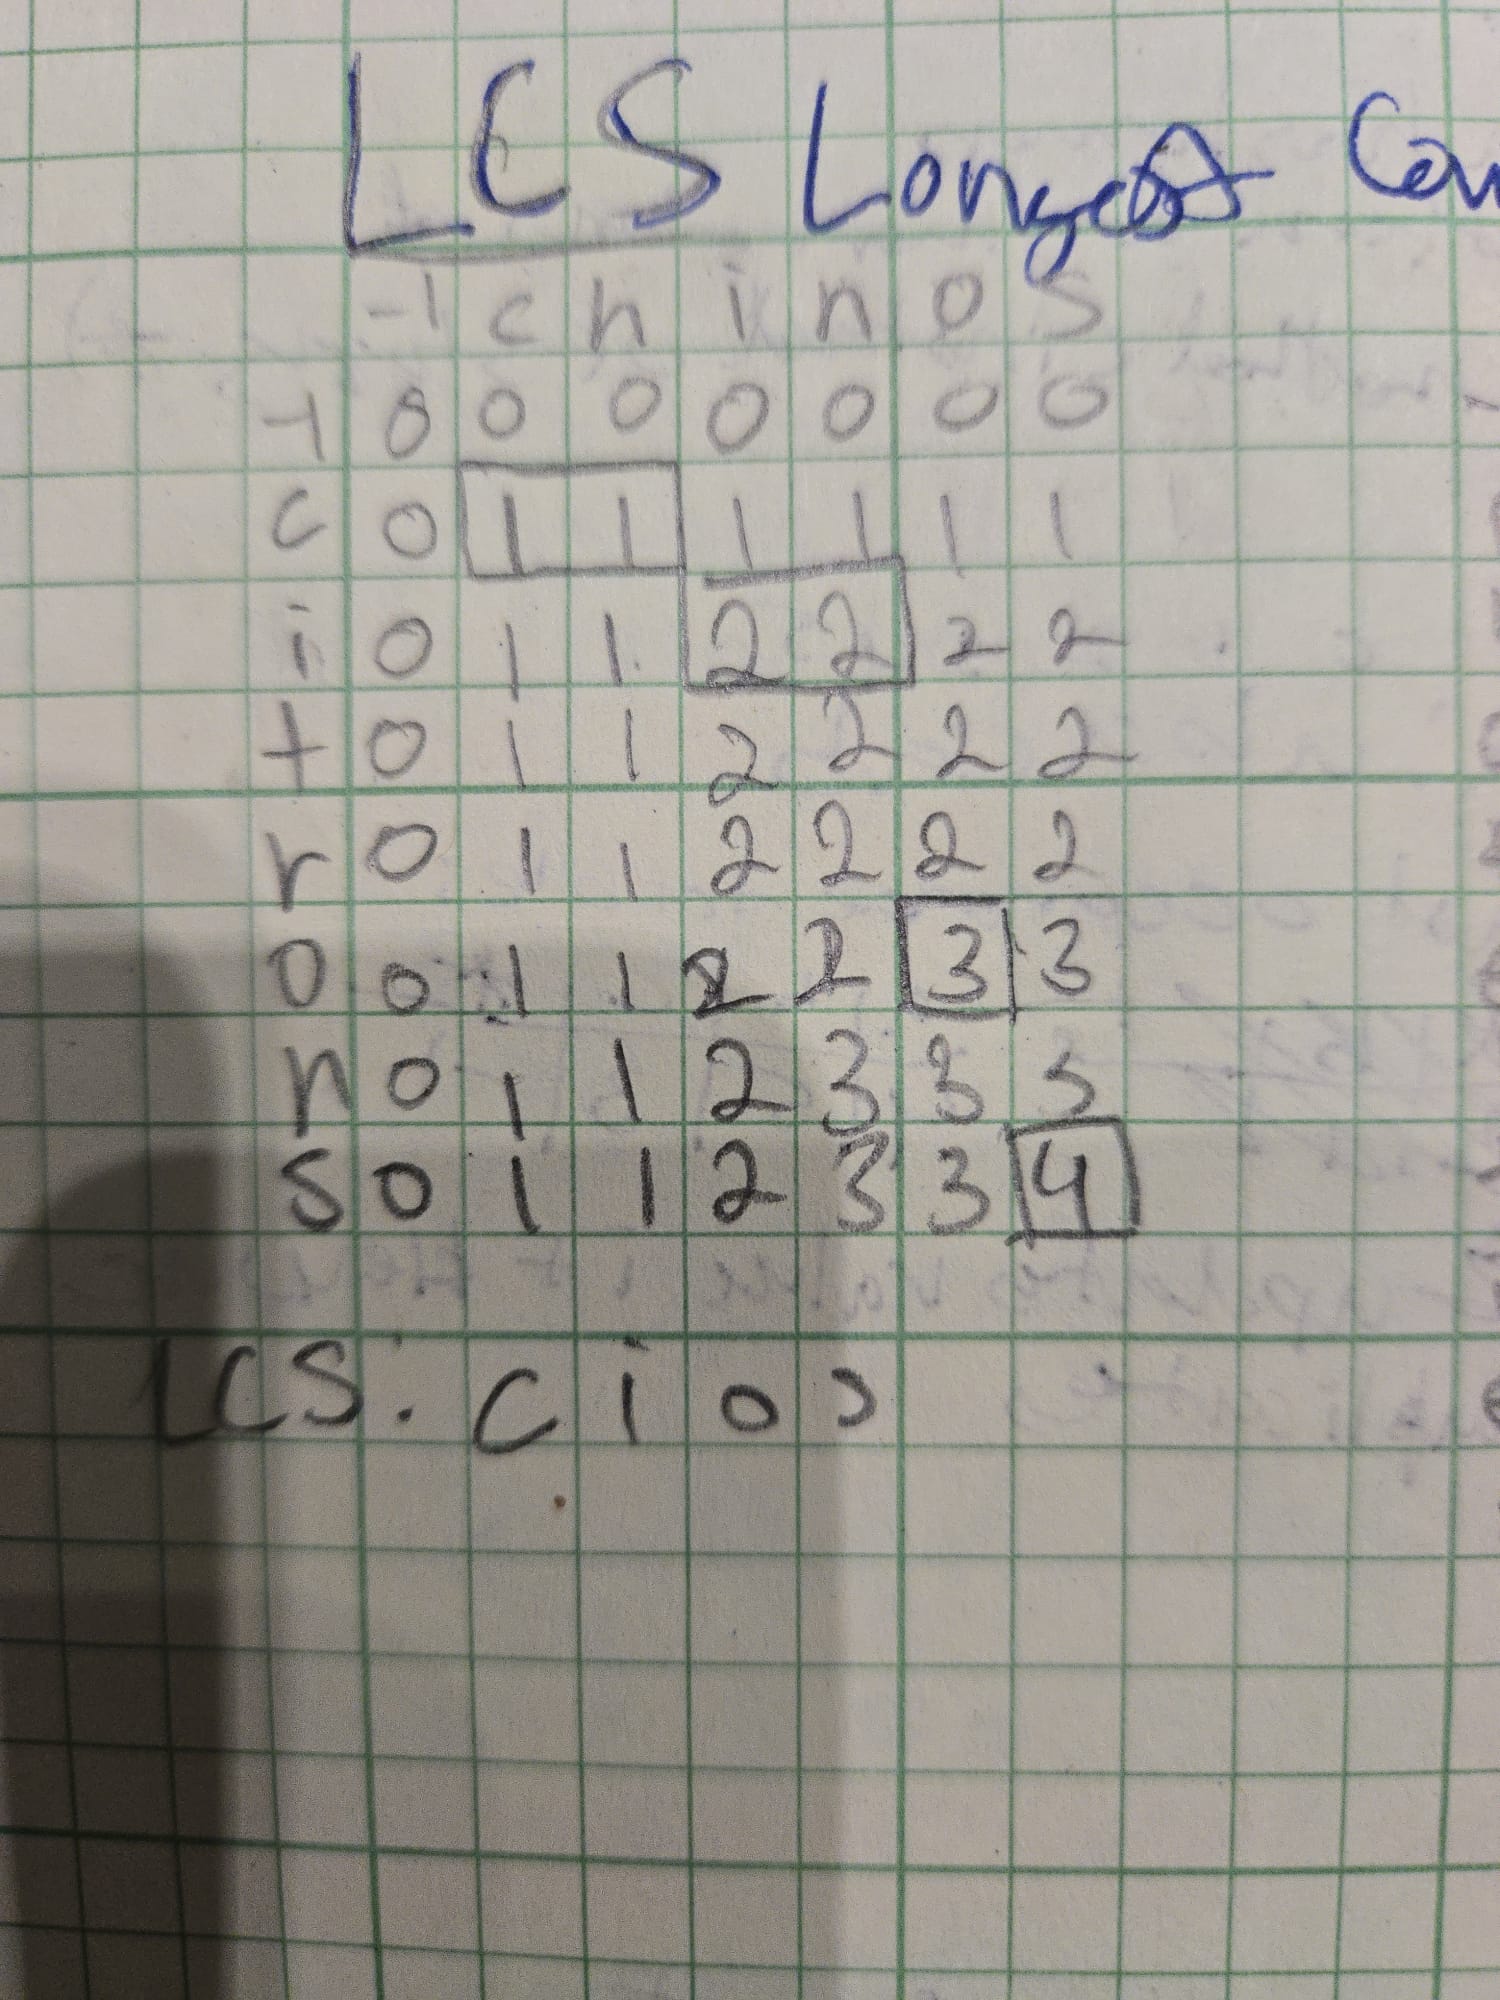 LCS Longest
-1 c h i n o s
-1 0 0 0 0 0 0 0
c 0 1 1 1 1 1 1
i 0 1 1 2 2 2 2
t 0 1 1 2 2 2 2
r 0 1 1 2 2 2 2
o 0 1 1 2 2 3 3
n 0 1 1 2 3 3 3
s 0 1 1 2 3 3 4
LCS: c i o s